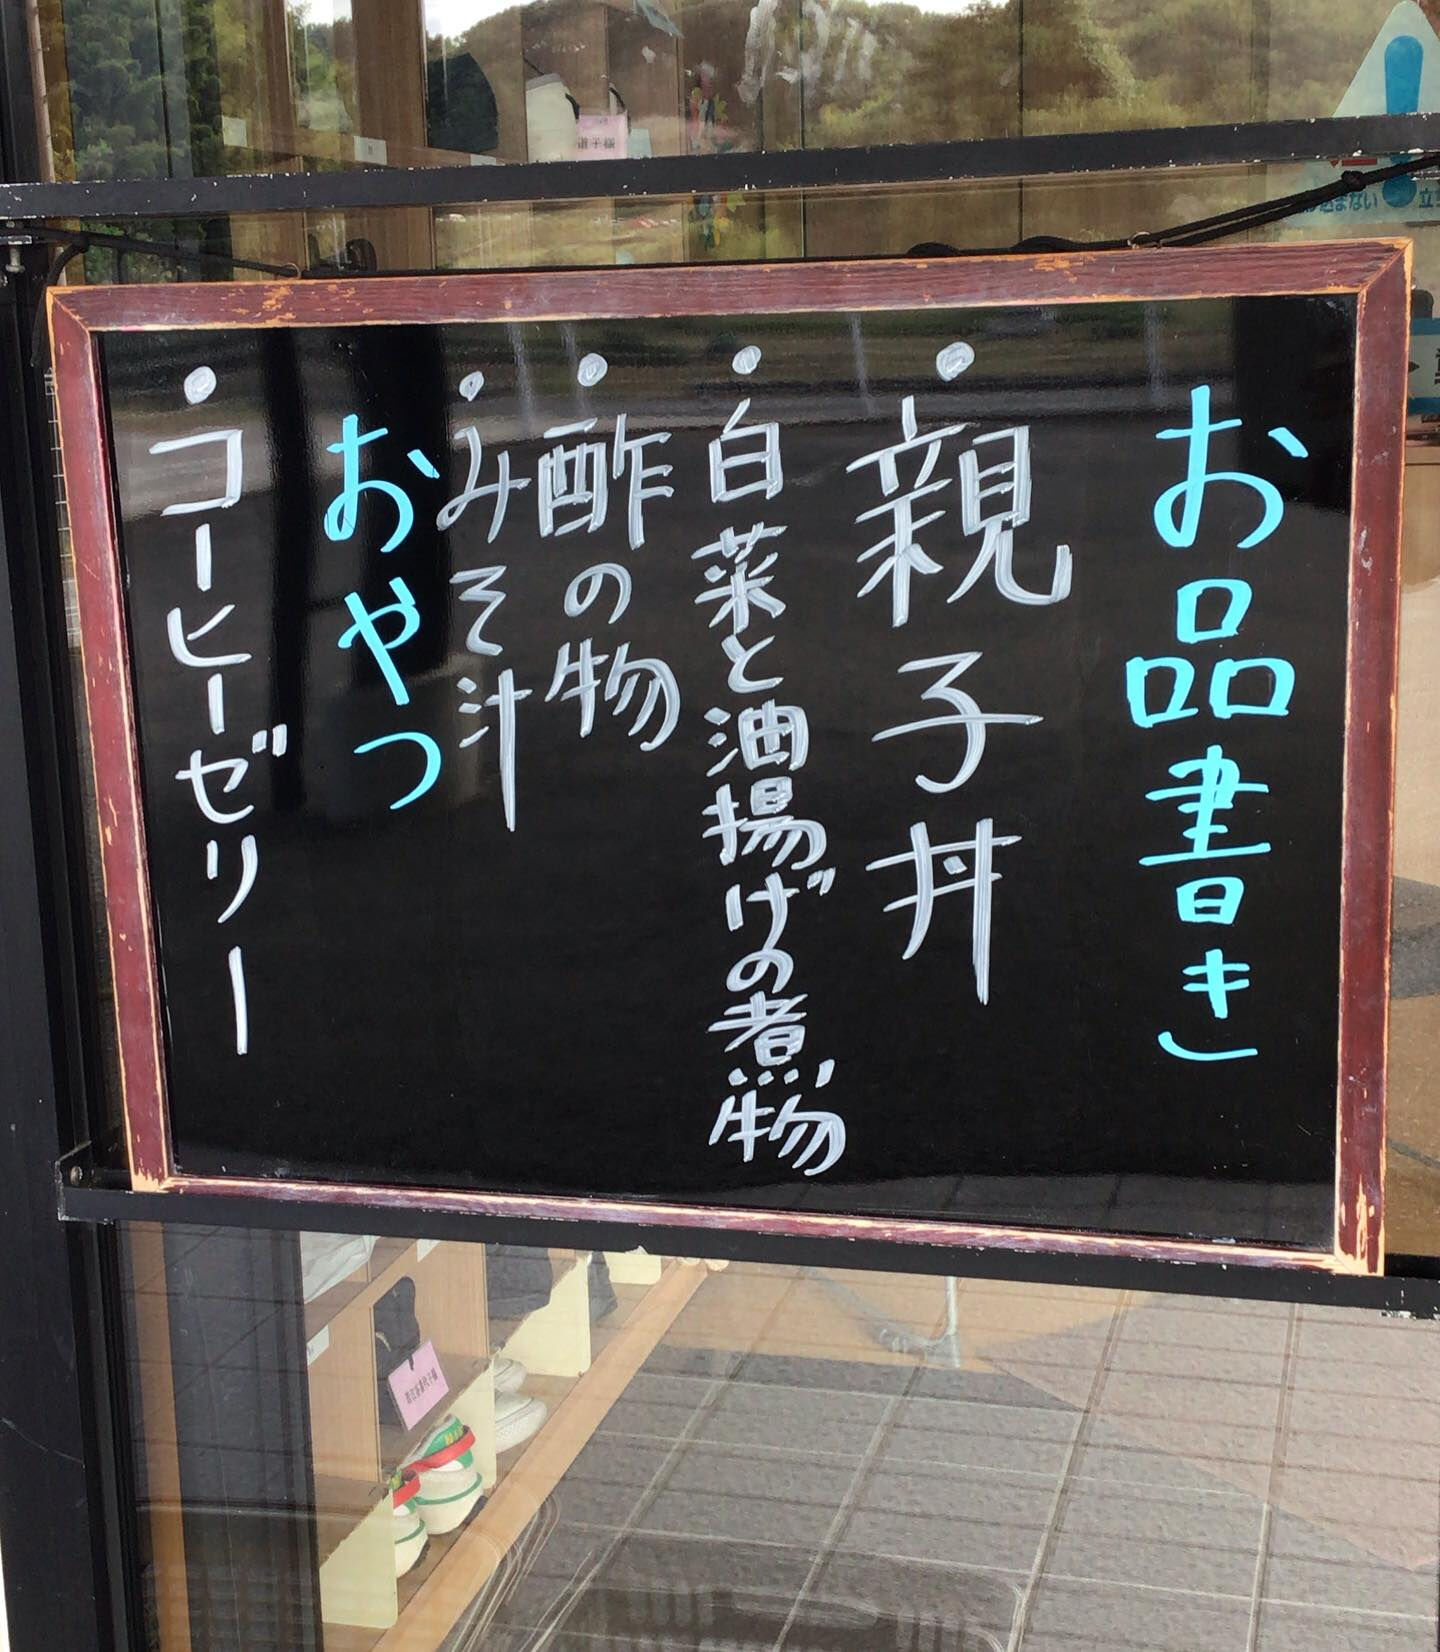 お品書き
・親子丼
・白菜と油揚げの煮物
・酢の物
・みそ汁
おやつ
・コーヒーゼリー